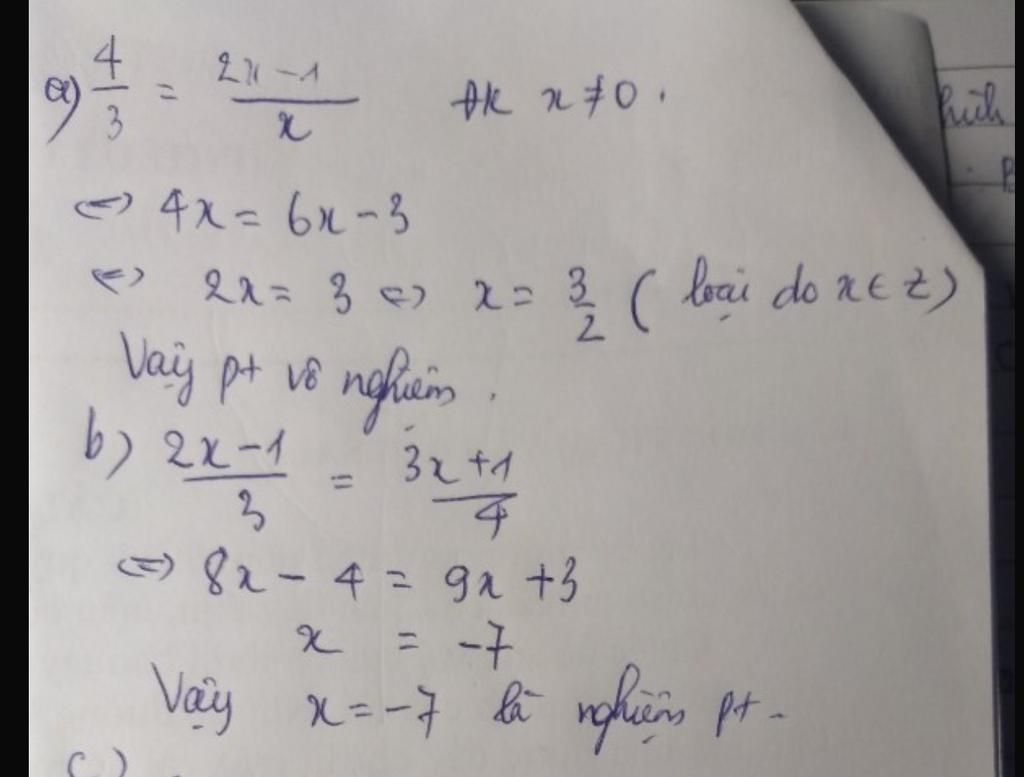 a) 4/3 = (2x - 1)/x ĐK x ≠ 0.
<=> 4x = 6x - 3
<=> 2x = 3 <=> x = 3/2 ( loại do x ∈ Z)
Vậy pt vô nghiệm.
b) (2x - 1)/3 = (3x + 1)/4
<=> 8x - 4 = 9x + 3
x = -7
Vậy x = -7 là nghiệm pt -
c)